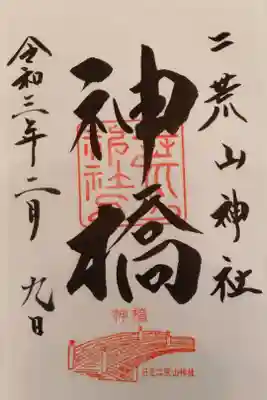 二荒山神社
神橋
令和三年二月九日
神橋
日光二荒山神社